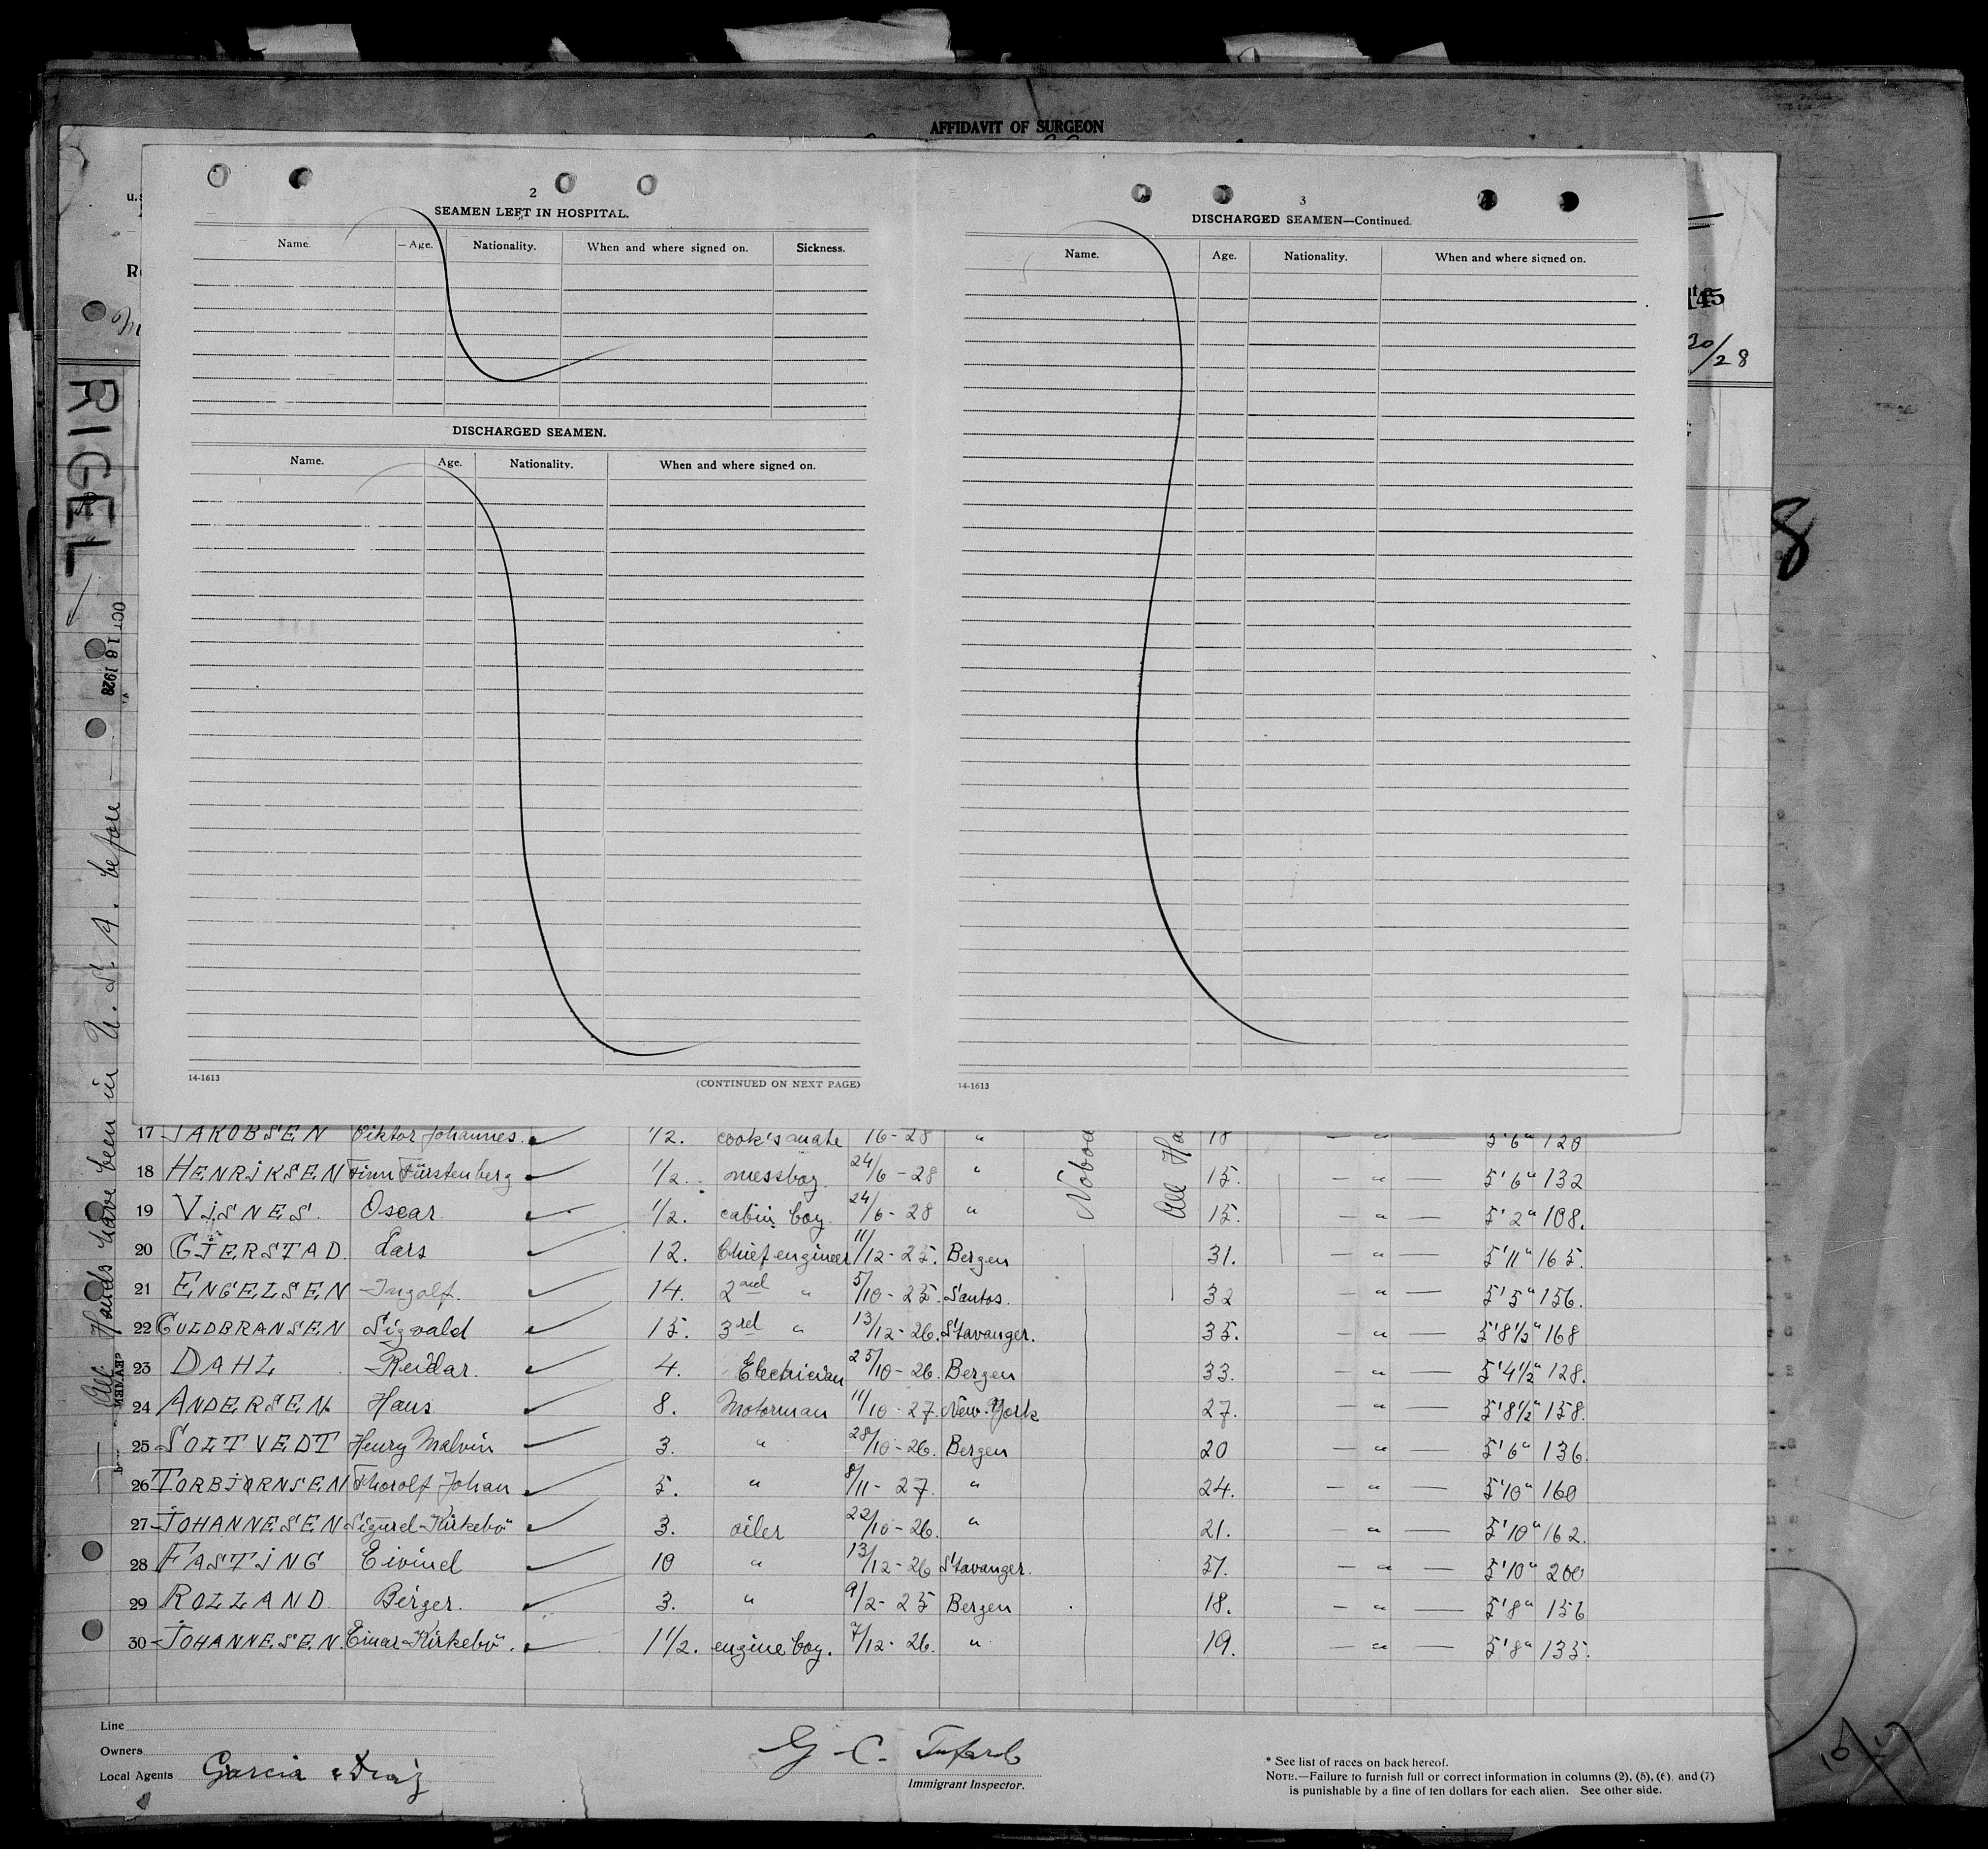 AFFIDAVIT OF SURGEON
2
SEAMEN LEFT IN HOSPITAL.
Name. Age. Nationality. When and where signed on. Sickness.
DISCHARGED SEAMEN.
Name. Age. Nationality. When and where signed on.
14-1613
(CONTINUED ON NEXT PAGE)
3
DISCHARGED SEAMEN—Continued.
Name. Age. Nationality. When and where signed on.
14-1613
45
30/28
8
RIGEL
OCT 16 1928
All Hands have been in U. S. A. before
17 JAKOBSEN Viktor Johannes. 1/2. cook's mate 16-28 " 18 — " — 5'6" 120
18 HENRIKSEN Finn Fürstenberg 1/2. messboy. 24/6 - 28 " 15. — " — 5'6" 132
19 VISNES. Oscar. 1/2. cabin boy. 24/6 - 28 " 15. — " — 5'2" 108.
20 GJERSTAD. Lars 12. Chief engineer 11/12 - 25. Bergen 31. — " — 5'11" 165.
21 ENGELSEN Ingolf. 14. 2nd " 5/10 - 25. Santos. 32 — " — 5'5" 156.
22 GULDBRANSEN Sigvald 15. 3rd " 13/12 - 26. Stavanger. 35. — " — 5'8½" 168
23 DAHL Reidar. 4. Electrician 25/10 - 26. Bergen 33. — " — 5'4½" 128.
24 ANDERSEN Hans 8. Motorman 11/10 - 27. New-York 27. — " — 5'8½" 158.
25 SOLTVEDT Henry Malvin 3. " 28/10 - 26. Bergen 20 — " — 5'6" 136.
26 TORBJØRNSEN Thorolf Johan 5. " 8/11 - 27. " 24. — " — 5'10" 160
27 JOHANNESEN Sigurd-Kirkebö 3. oiler 22/10 - 26. " 21. — " — 5'10" 162.
28 FASTING Eivind 10 " 13/12 - 26 Stavanger. 37. — " — 5'10" 200
29 ROLLAND. Birger. 3. " 9/2 - 25 Bergen 18. — " — 5'8" 156
30 JOHANNESEN. Einar-Kirkebö. 1 1/2. engine boy. 7/12 - 26. " 19. — " — 5'8" 135.
Line
Owners
Local Agents Garcia & Diaz
G C.
Immigrant Inspector.
* See list of races on back hereof.
NOTE.—Failure to furnish full or correct information in columns (2), (5), (6) and (7)
is punishable by a fine of ten dollars for each alien. See other side.
10/17